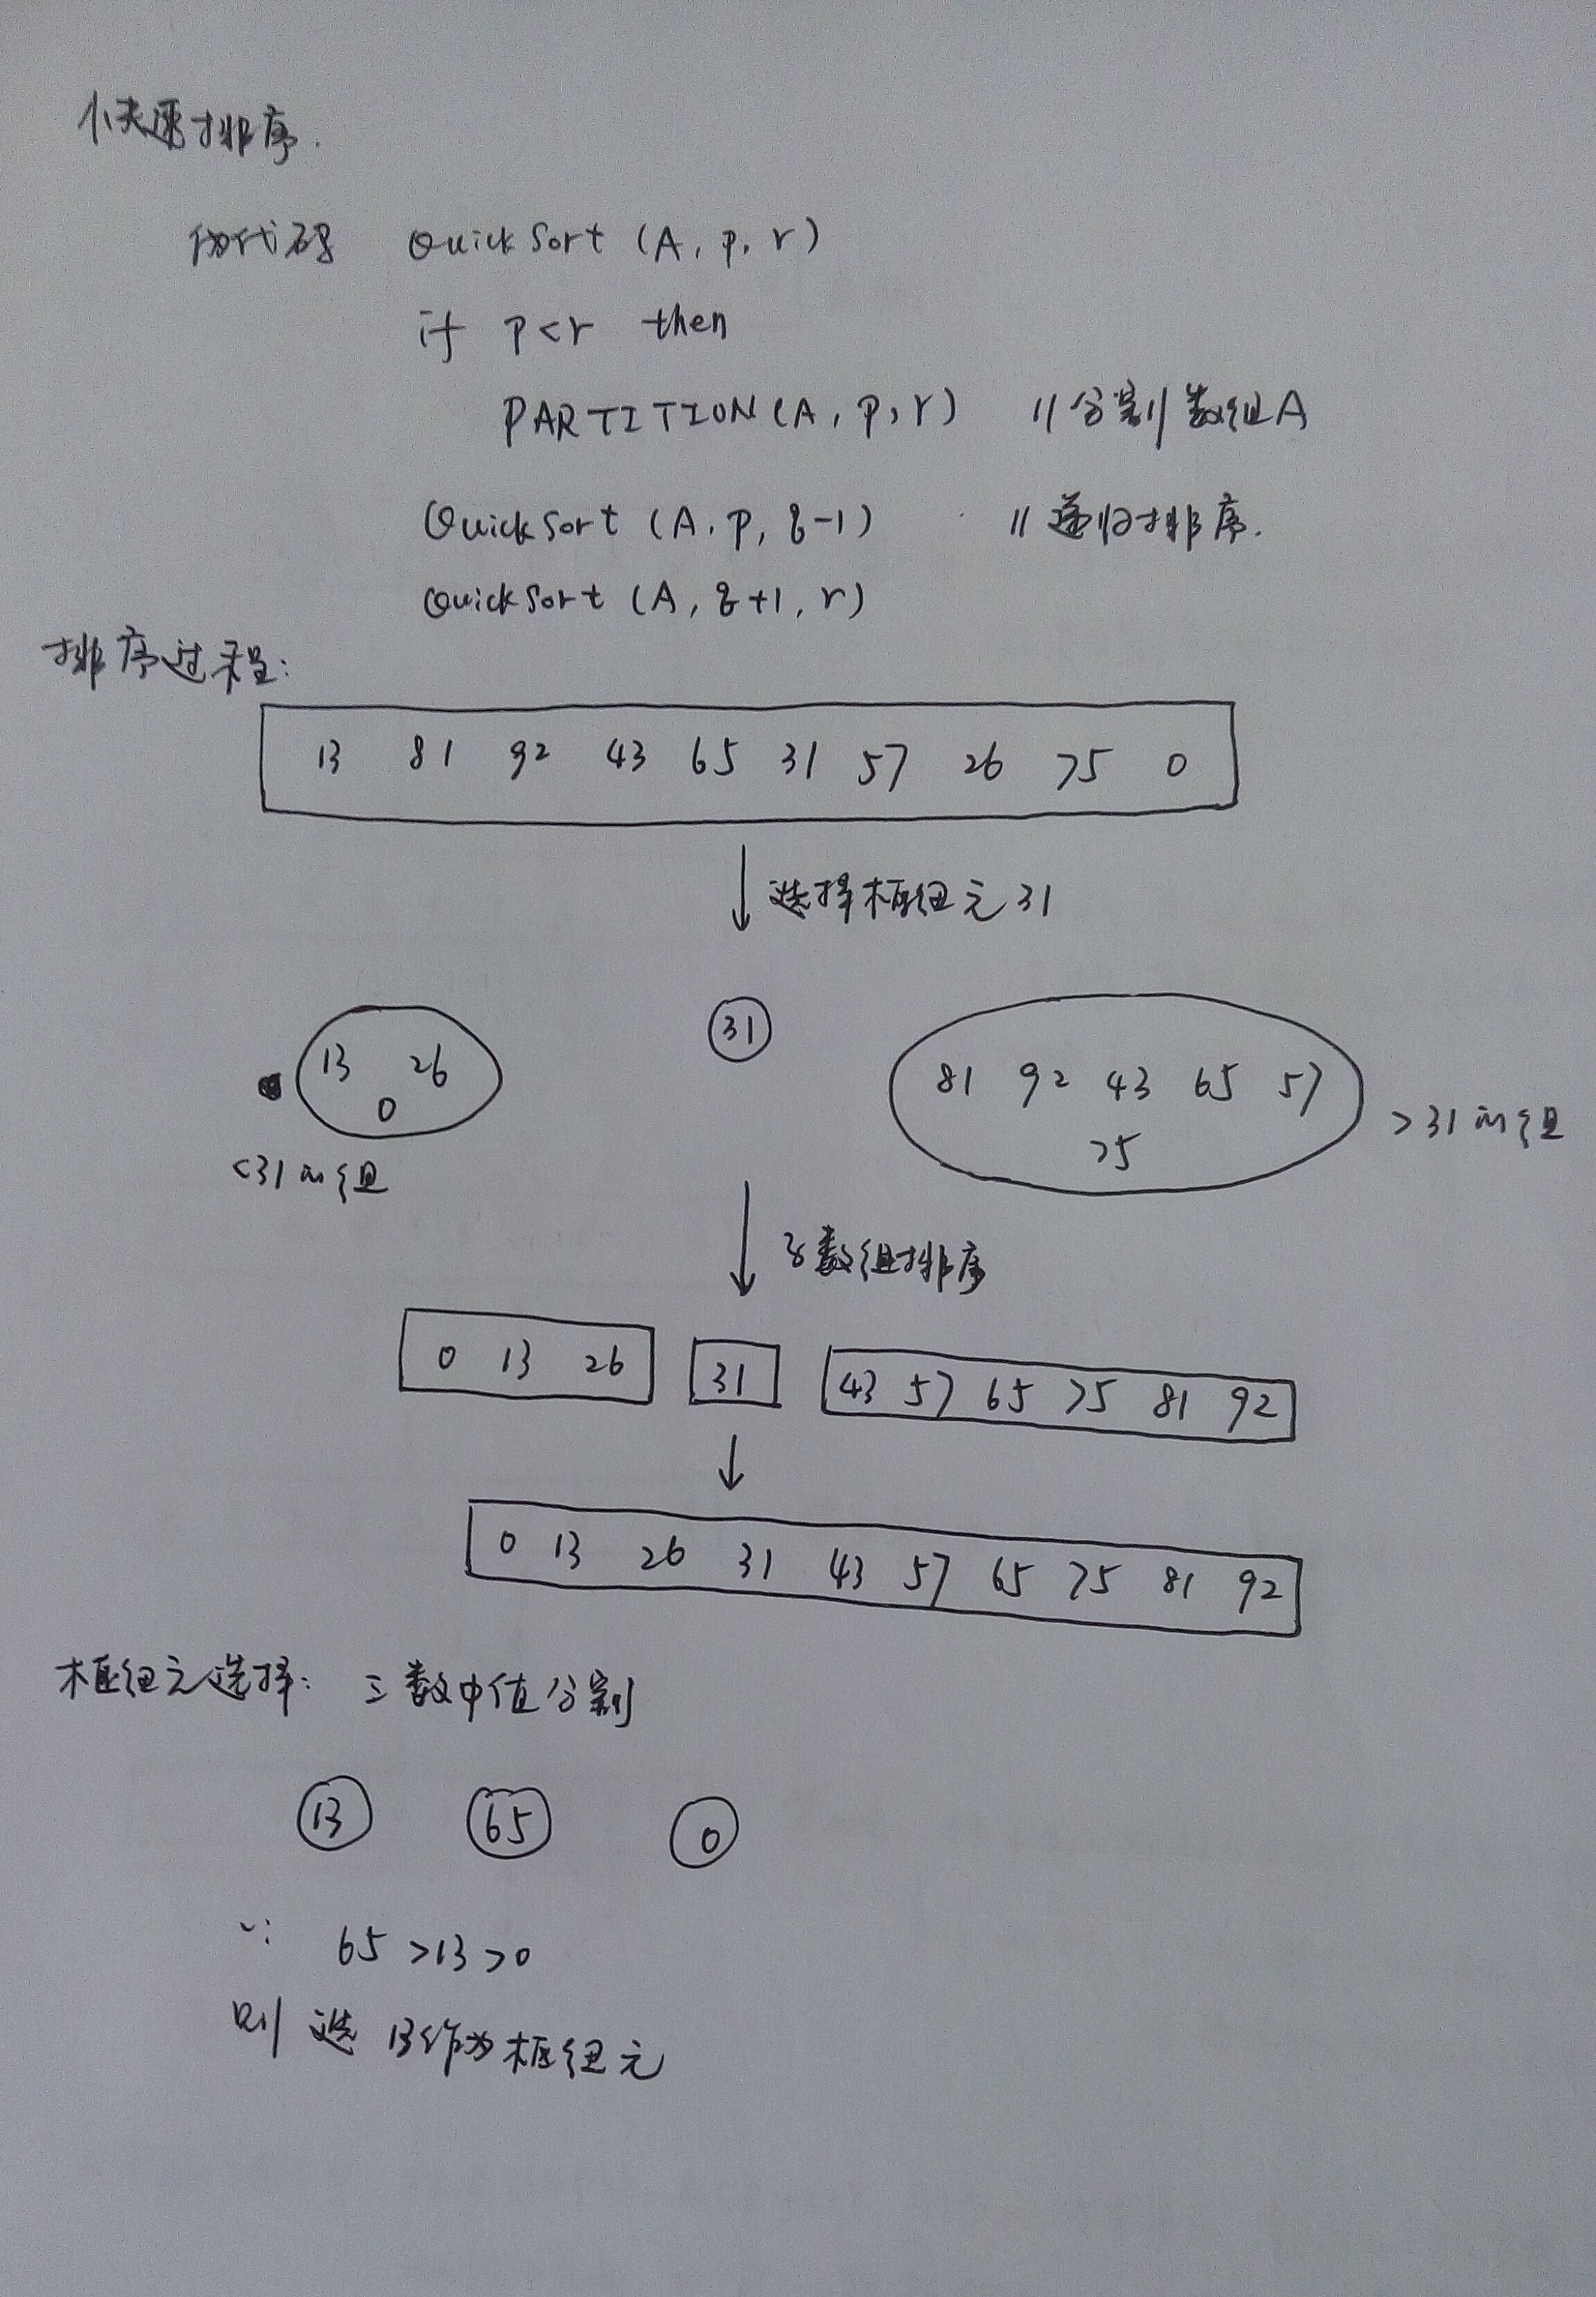 快速排序.
伪代码 QuickSort (A, p, r)
if p<r then
PARTITION(A, p, r) //分割数组A
QuickSort (A, p, q-1) //递归排序.
QuickSort (A, q+1, r)
排序过程:
13 81 92 43 65 31 57 26 75 0
选择枢纽元31
31
13 26
81 92 43 65 57
0
75
>31的组
<31的组
子数组排序
0 13 26 31 43 57 65 75 81 92
0 13 26 31 43 57 65 75 81 92
枢纽元选择: 三数中值分割
13 65 0
∵ 65>13>0
则选13作为枢纽元